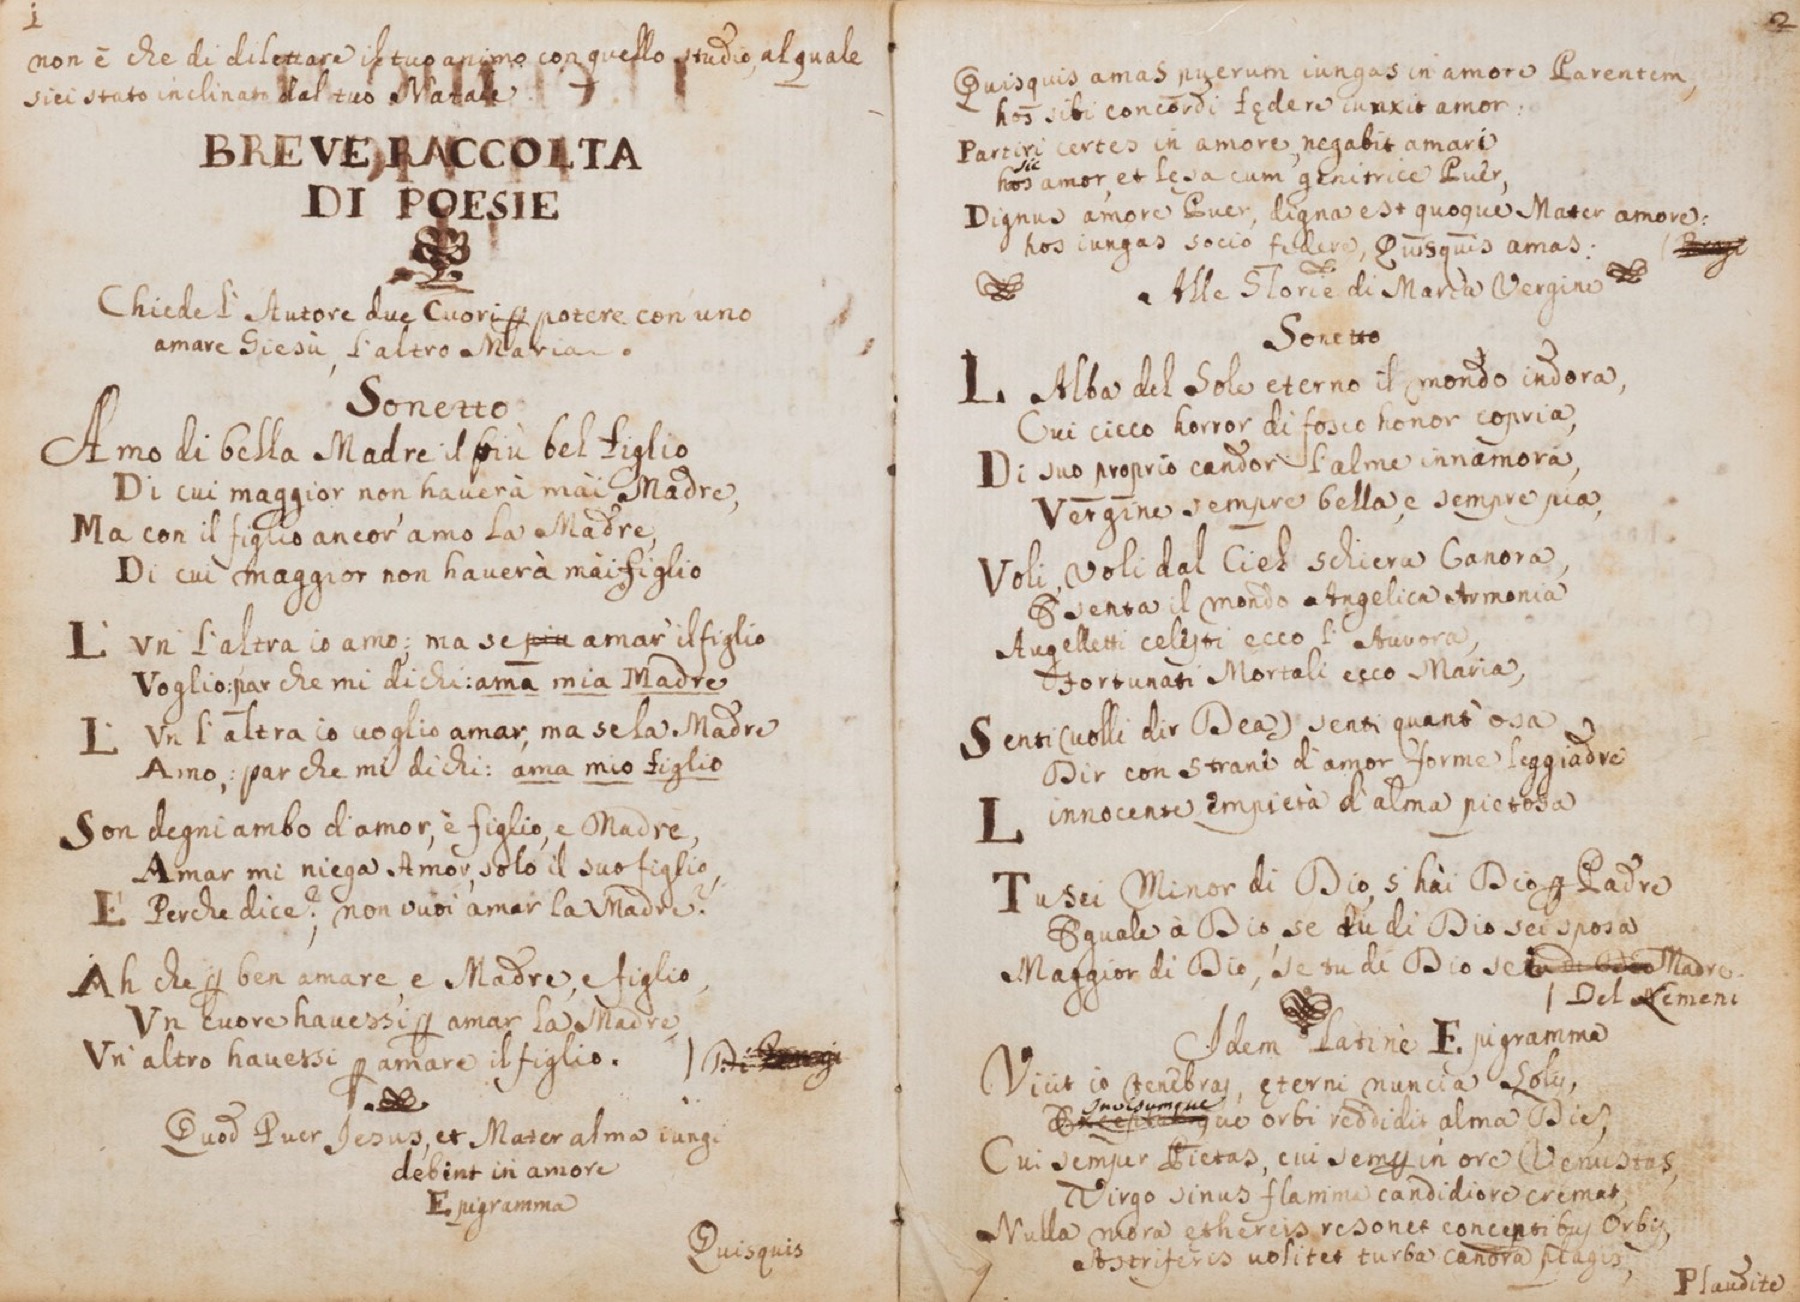 1
non è che di dilettare il tuo animo con quello studio, al quale
siei stato inclinato dal tuo Natale
BREVE RACCOLTA
DI POESIE
Chiede l'Autore due Cuori ꝑ potere con uno
amare Giesù, l'altro Maria.
Sonetto
Amo di bella Madre il più bel figlio
Di cui maggior non hauerà mài Madre,
Ma con il figlio ancor' amo la Madre,
Di cui maggior non hauerà mài figlio
L' vn' l'altra io amo; ma se più amar' il figlio
Voglio: par che mi dichi: ama mia Madre
L' Vn' l'altra io uoglio amar, ma se la Madre
Amo,: par che mi dichi: ama mio figlio
Son degni ambo d'amor, è figlio, e Madre,
Amar mi niega Amor, solo il suo figlio,
E Perche dice? non vuoi amar la Madre?
Ah che ꝑ ben amare, e Madre, e figlio,
Vn cuore hauessi ꝑ amar la Madre
Vn' altro hauessi ꝑ amare il figlio.
Di
Quod Puer Jesus, et Mater alma iungi
debent in amore
Epigramma
Quisquis
2
Quisquis amas puerum iungas in amore Parentem,
hos sibi concordi fędere iunxit amor:
Partiri certes in amore, negabit amari
sic
hos amor, et lęsa cum genitrice Puer,
Dignus amore Puer, digna est quoque Mater amore:
hos iungas socio fędere, Quisquis amas:
Alle Glorie di Maria Vergine
Sonetto
L' Alba del Sole eterno il mondo indora,
Cui cieco horror di fosco honor copria,
Di suo proprio candor l'alme innamora,
Vergine sempre bella, e sempre pia,
Voli, voli dal Ciel schiera Canora,
E senta il mondo Angelica Armonia
Augelletti celesti ecco l'Auuora,
Fortunati Mortali ecco Maria,
Senti (uolli dir Dea) senti quant' osa
Dir con strani d'amor forme leggiadre
L innocente empietà d'alma pietosa
Tu sei Minor di Dio, s'hai Dio ꝑ Padre
Eguale à Dio, se tu di Dio sei sposa
Maggior di Dio, se tu di Dio sei tu di Dio Madre.
Del Lemene
Idem Latinè Epigramma
Vicit io tenebras, ęterni nuncia Solis,
inuisumque
que orbi reddidit alma Dies,
Cui semper Pietas, cui semꝑ in ore Venustas,
Virgo sinus flamma candidiore cremat,
Nulla mora ethereis resonet concentibus Orbis,
Astriferis uolitet turba canora plagis,
Plaudite